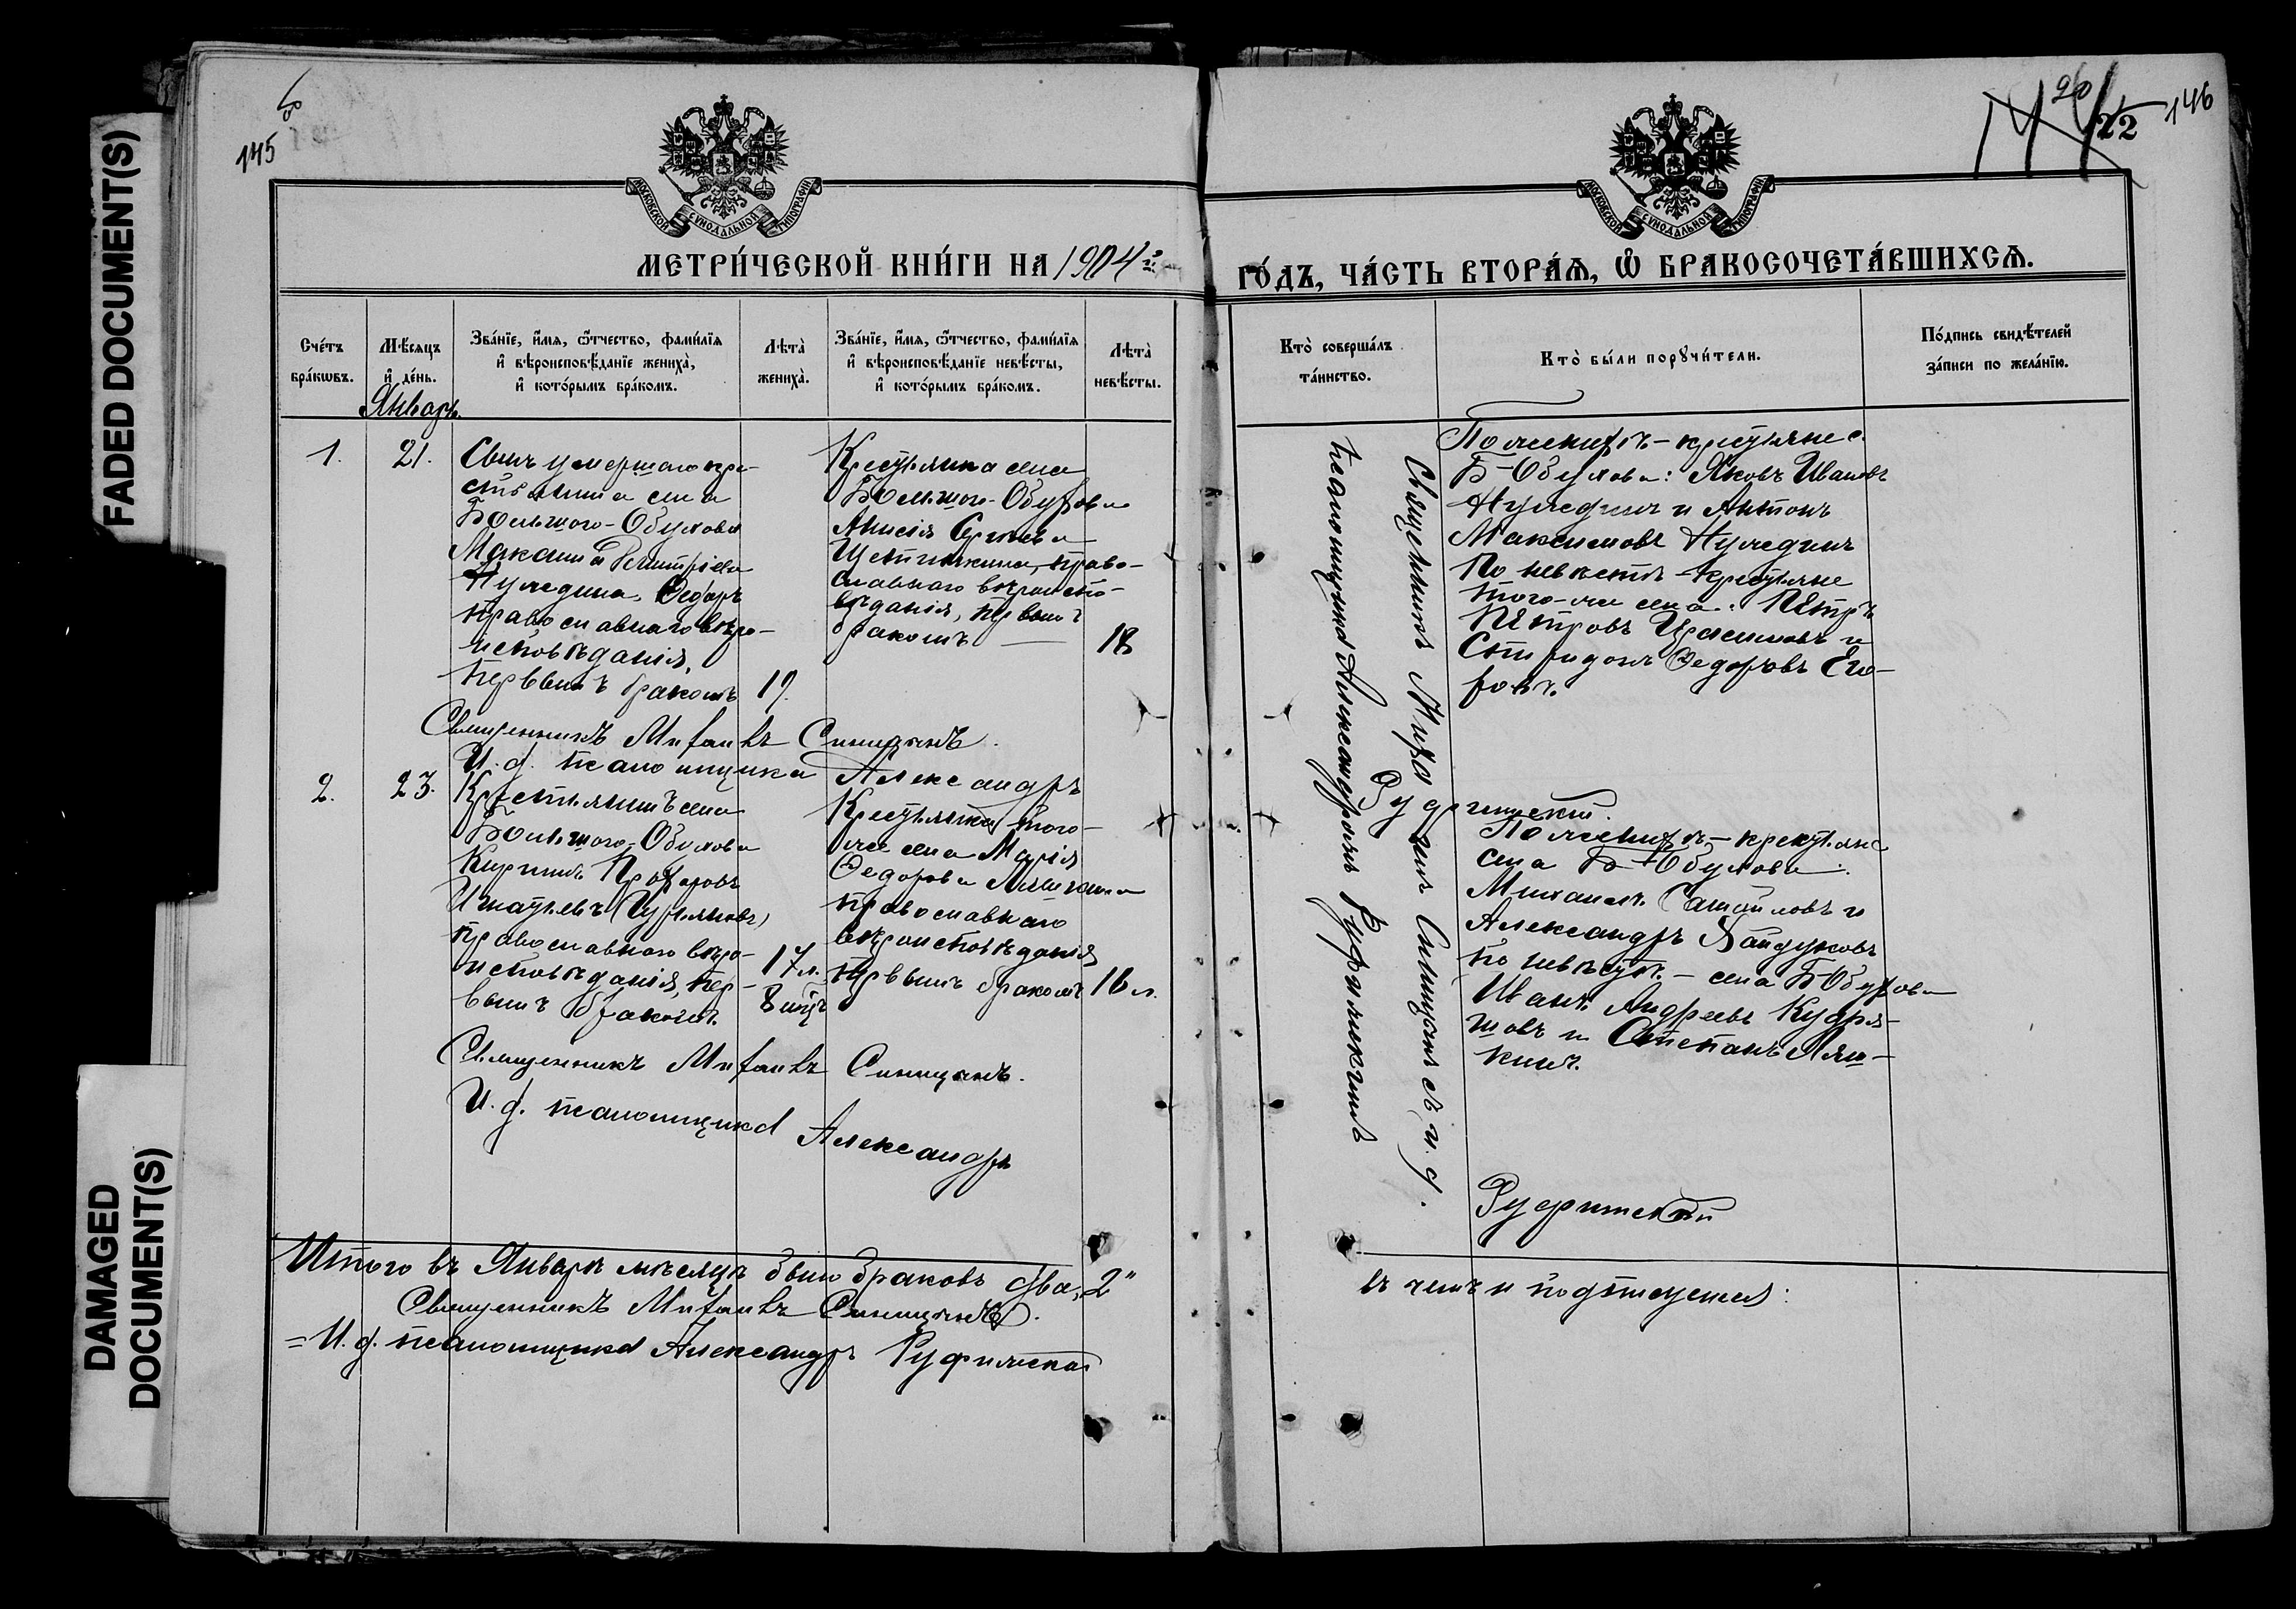 FADED DOCUMENT(S)
DAMAGED
DOCUMENT(S)
145
МОСКОВСКОЙ СУНОДАЛЬНОЙ ТИПОГРАФІИ
МЕТРИ́ЧЕСКОЙ КНИ́ГИ НА 1904й
Сче́тъ
бра́кѡвъ.
Мѣ́сяцъ
и҆ де́нь.
Январь.
Зва́нїе, и҆́мя, ѻ҆́тчество, фами́лїя
и҆ вѣроисповѣ́данїе жениха̀,
и҆ кото́рымъ бра́комъ.
Лѣта̀
жениха̀.
Зва́нїе, и҆́мя, ѻ҆́тчество, фами́лїя
и҆ вѣроисповѣ́данїе невѣ́сты,
и҆ кото́рымъ бра́комъ.
Лѣта̀
невѣ́сты.
1.
21.
Сынъ умершаго кре-
стьянина села
Большого-Обухова
Макаша Дмитріева
Нужедина, Ѳедоръ
православнаго вѣро-
исповѣданія,
первымъ бракомъ
19.
Крестьянка села
Большого-Обухова
Анисія Сергѣева
Щетинкина, право-
славнаго вѣроиспо-
вѣданія, первымъ
бракомъ
18
Священникъ Михаилъ Синицынъ.
И. д. псаломщика Александръ
2.
23.
Крестьянинъ села
Большого-Обухова
Кириллъ Прохоровъ
Игнатьевъ
православнаго вѣро-
исповѣданія, пер-
вымъ бракомъ.
17 л.
8 мѣц
Крестьянка того-
же села Марія
Ѳедорова
православнаго
вѣроисповѣданія
первымъ бракомъ
16 л.
Священникъ Михаилъ Синицынъ.
И. д. псаломщика Александръ
Итого въ Январѣ мѣсяцѣ было браковъ два, 2"
Священникъ Михаилъ Синицынъ.
= И. д. псаломщика Александръ Руфимскій
26
22
146
МОСКОВСКОЙ СУНОДАЛЬНОЙ ТИПОГРАФІИ
ГО́ДЪ, ЧА́СТЬ ВТОРА́Ѧ, Ѽ БРАКОСОЧЕТА́ВШИХСѦ.
Кто̀ соверша́лъ
та́инство.
Кто̀ бы́ли порꙋчи́тели.
По́дпись свидѣ́телей
за́писи по жела́нїю.
Священникъ Михаилъ Синицынъ съ и. д.
псаломщика Александромъ Руфимскимъ
По женихѣ - крестьяне с.
Б-Обухова: Яковъ Ивановъ
Нужединъ и Антонъ
Максимовъ Нужединъ
По невѣстѣ - крестьяне
того-же села: Петръ
Петровъ и
Спиридонъ Ѳедоровъ Его-
ровъ.
Руфимскій.
По женихѣ - крестьяне
села Б-Обухова:
Михаилъ Самойловъ и
Александръ Хайдуковъ
по невѣстѣ. - села Б Обухова
Иванъ Андреевъ Кудря-
шовъ и Степанъ Ляш-
кинъ.
Руфимскій
въ чемъ и подписуемся: